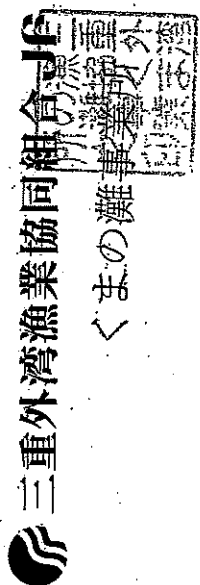 三重外湾漁業協同組合JF
くまの灘事業所